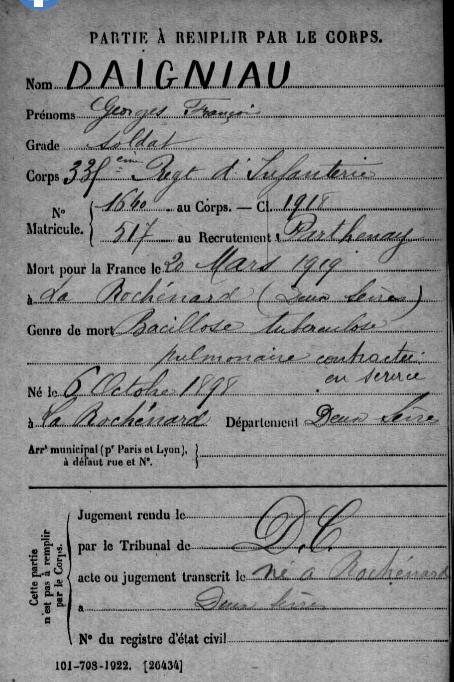 PARTIE À REMPLIR PAR LE CORPS.
Nom DAIGNIAU
Prénoms Georges François
Grade soldat
Corps 335eme Regt d'Infanterie
N° Matricule. 1660 au Corps. — Cl. 1918
517 au Recrutement Parthenay
Mort pour la France le 20 Mars 1919
à La Rochénard (Deux Sèvres)
Genre de mort Bacillose tuberculose
pulmonaire contractée
en service
Né le 6 Octobre 1898
à La Rochénard Département Deux Sèvres
Arrt municipal (pr Paris et Lyon), à défaut rue et N°.
Cette partie n'est pas à remplir par le Corps.
Jugement rendu le
par le Tribunal de D.C.
acte ou jugement transcrit le né à Rochénard
à Deux Sèvres
N° du registre d'état civil
101-708-1922. [26434]